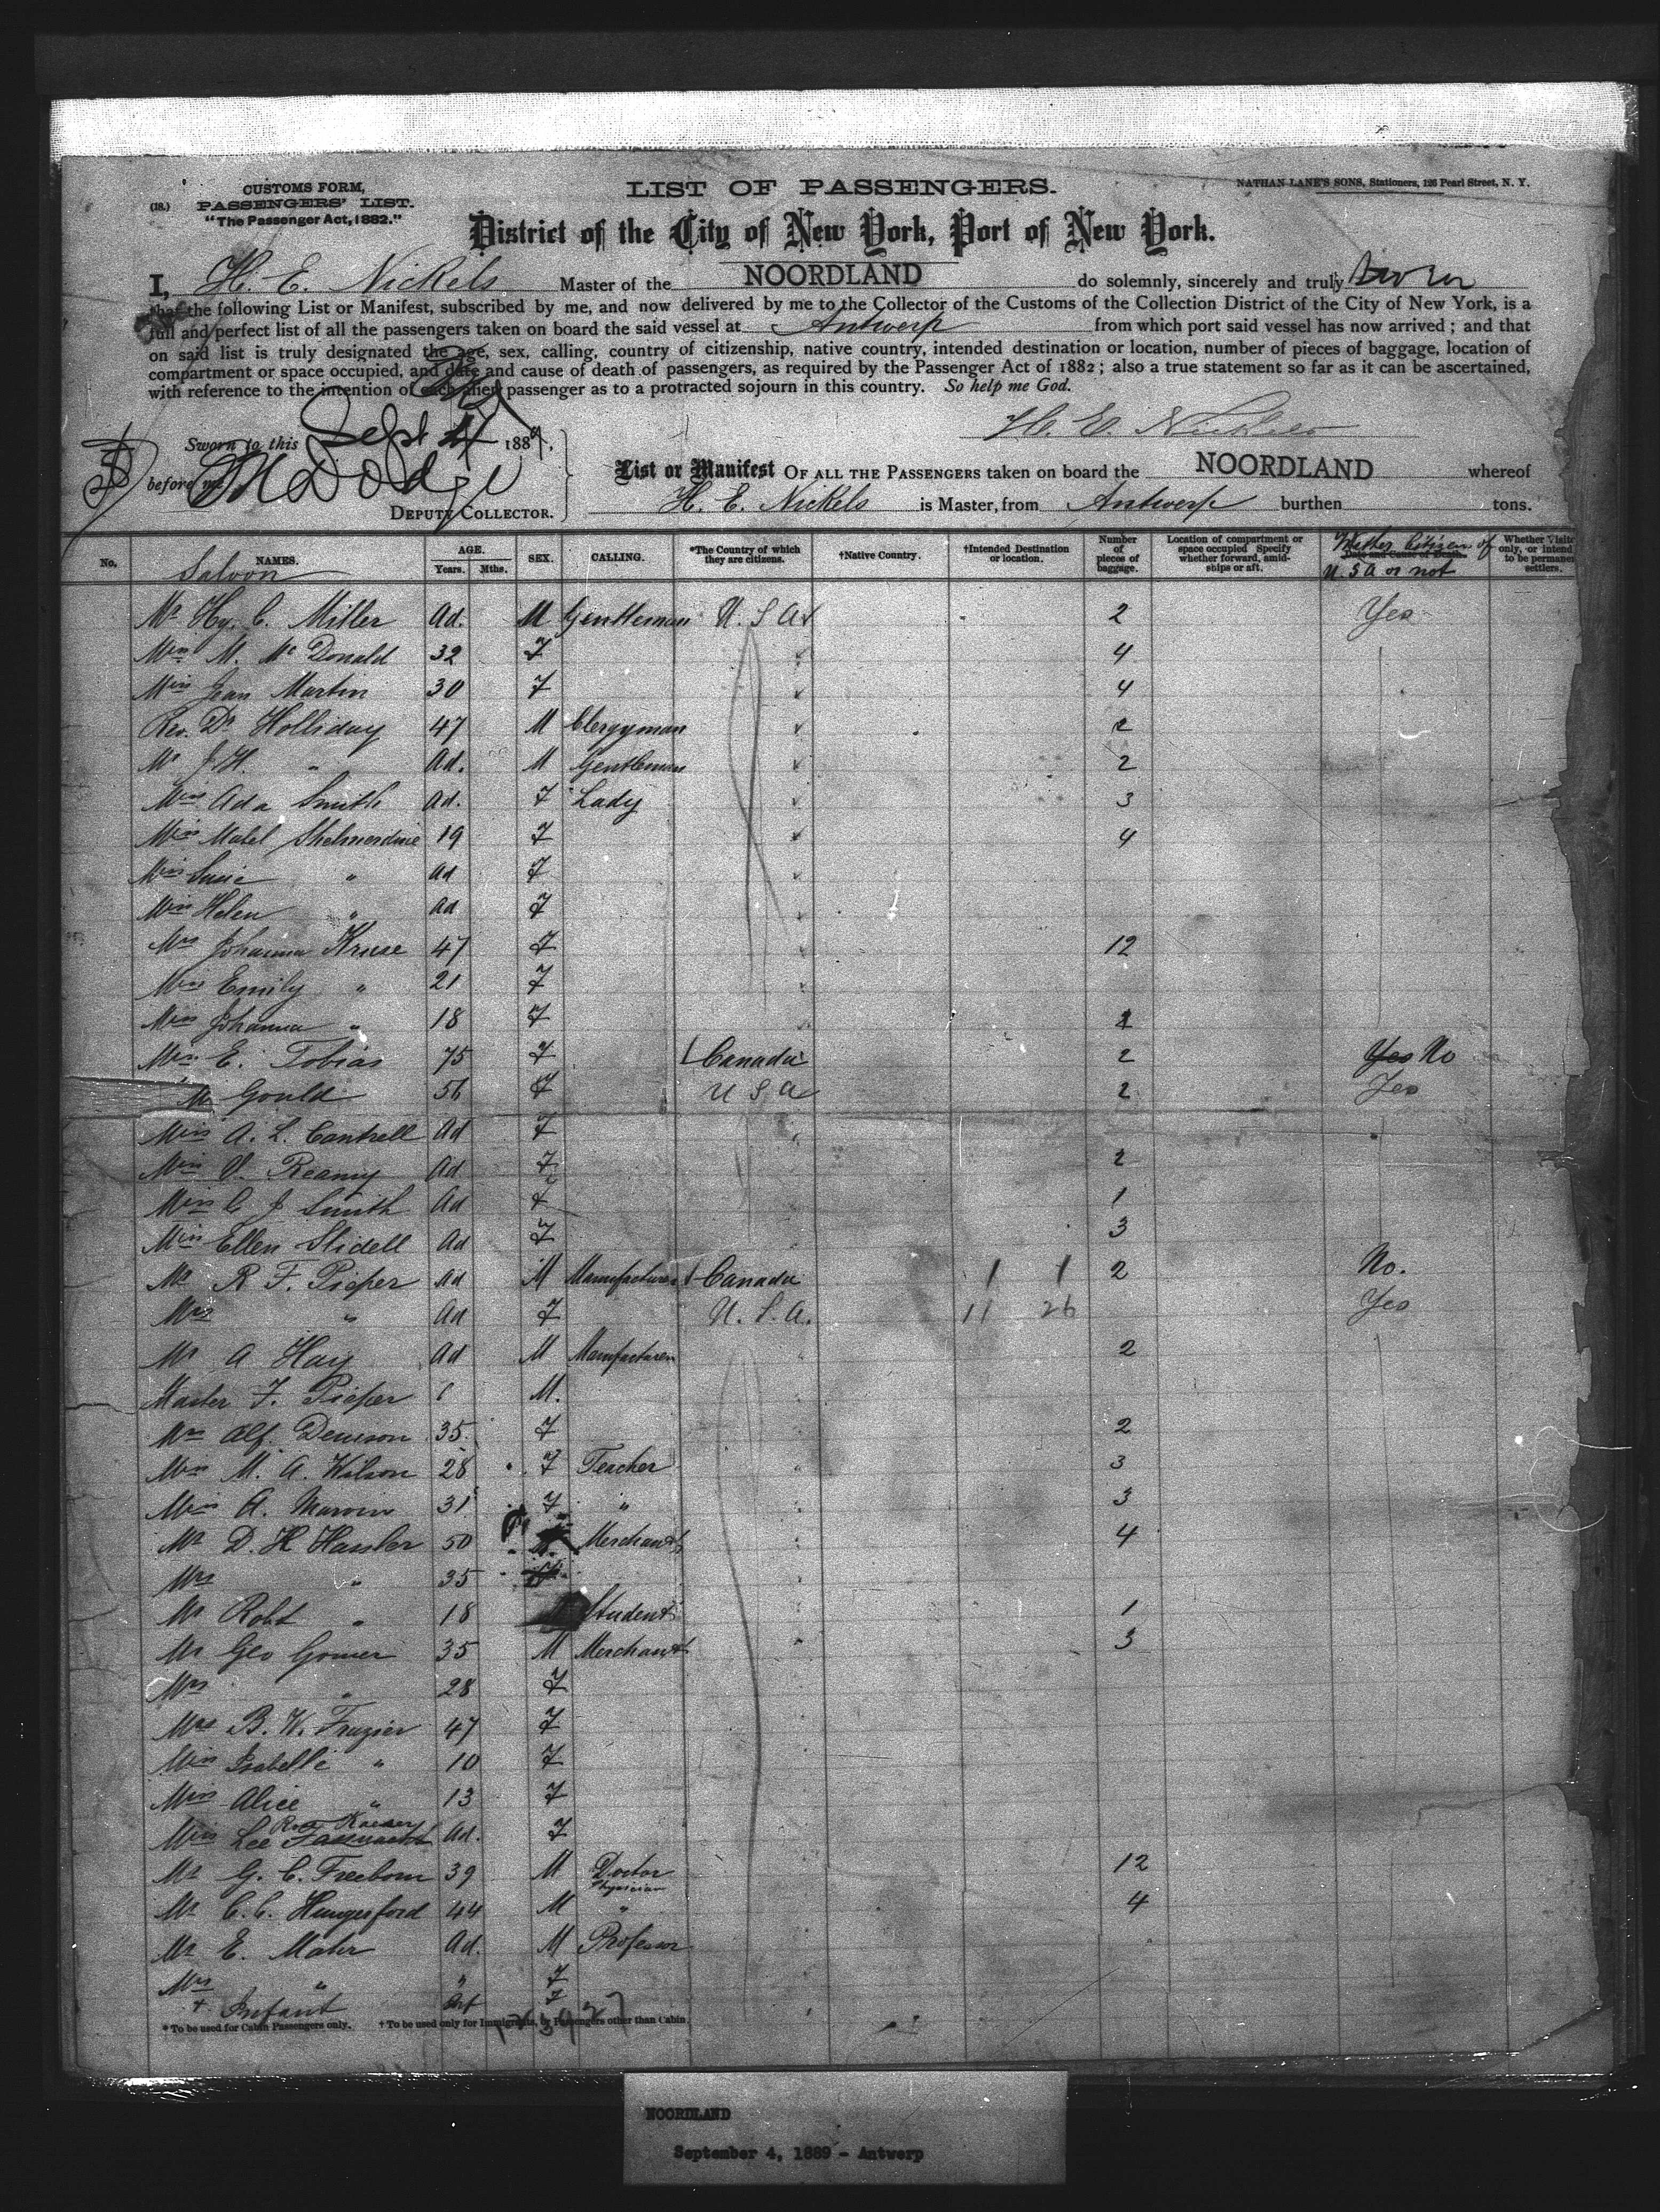 CUSTOMS FORM,
(18.) PASSENGERS' LIST.
"The Passenger Act, 1882."
LIST OF PASSENGERS.
NATHAN LANE'S SONS, Stationers, 126 Pearl Street, N. Y.
District of the City of New York, Port of New York.
I, H. E. Nickels Master of the NOORDLAND do solemnly, sincerely and truly swear
that the following List or Manifest, subscribed by me, and now delivered by me to the Collector of the Customs of the Collection District of the City of New York, is a
full and perfect list of all the passengers taken on board the said vessel at Antwerp from which port said vessel has now arrived; and that
on said list is truly designated the age, sex, calling, country of citizenship, native country, intended destination or location, number of pieces of baggage, location of
compartment or space occupied, and date and cause of death of passengers, as required by the Passenger Act of 1882; also a true statement so far as it can be ascertained,
with reference to the intention of each alien passenger as to a protracted sojourn in this country. So help me God.
H. E. Nickels
Sworn to this Sept 4 1889.
before me M Dodge
DEPUTY COLLECTOR.
List or Manifest OF ALL THE PASSENGERS taken on board the NOORDLAND whereof
H. E. Nickels is Master, from Antwerp burthen tons.
No. NAMES. AGE. Years. Mths. SEX. CALLING. *The Country of which they are citizens. †Native Country. †Intended Destination or location. Number of pieces of baggage. Location of compartment or space occupied Specify whether forward, amidships or aft. Date and Cause of Death. Whether Citizens of U. S A or not
Saloon
Mr Hy. C. Miller Ad. M Gentleman U. S A 2 Yes
Miss M. McDonald 32 F " 4
Miss Jean Martin 30 F " 4
Rev. Dr Holliday 47 M Clergyman " 2
Mr J. H. " Ad. M Gentleman " 2
Miss Ada Smith Ad. F Lady " 3
Miss Mabel Shelmerdine 19 F " 4
Miss Susie " Ad F "
Miss Helen " Ad F "
Mrs Johanna Kruse 47 F " 12
Miss Emily " 21 F "
Miss Johanna " 18 F "
Mrs E. Tobias 75 F Canada 2 Yes No
Gould 56 F U S A 2 Yes
Miss A. L. Cantrell Ad F "
Miss V. Reamy Ad F 2
Miss C J Smith Ad F 1
Miss Ellen Slidell Ad F 3
Mr R F. Pieper Ad M Manufacturer Canada 1 1 2 No.
Mrs " Ad F U. S. A. 11 26 Yes
Mr A Hay Ad M Manufacturer " 2
Master F. Pieper M.
Mrs Alf. Denison 35 F 2
Miss M. A. Wilson 28 F Teacher " 3
Miss A. Marvin 31 F " 3
Mr D. H Hassler 50 Merchant 4
Mrs " 35
Mr Robt " 18 Student 1
Mr Geo Gomer 35 M Merchant " 3
Mrs " 28 F
Mrs B. W. Frazier 47 F
Miss Isabelle " 10 F
Miss Alice " 13 F
Miss Lee Ad. F
Mr G. C. Freeborn 39 M Doctor Physician 12
Mr C. C. Hungerford 44 M " 4
Mr E. Mahr Ad. M Professor
Mrs " " F
+ Infant Inf F
*To be used for Cabin Passengers only. †To be used only for Immigrants, or Passengers other than Cabin.
NOORDLAND
September 4, 1889 - Antwerp